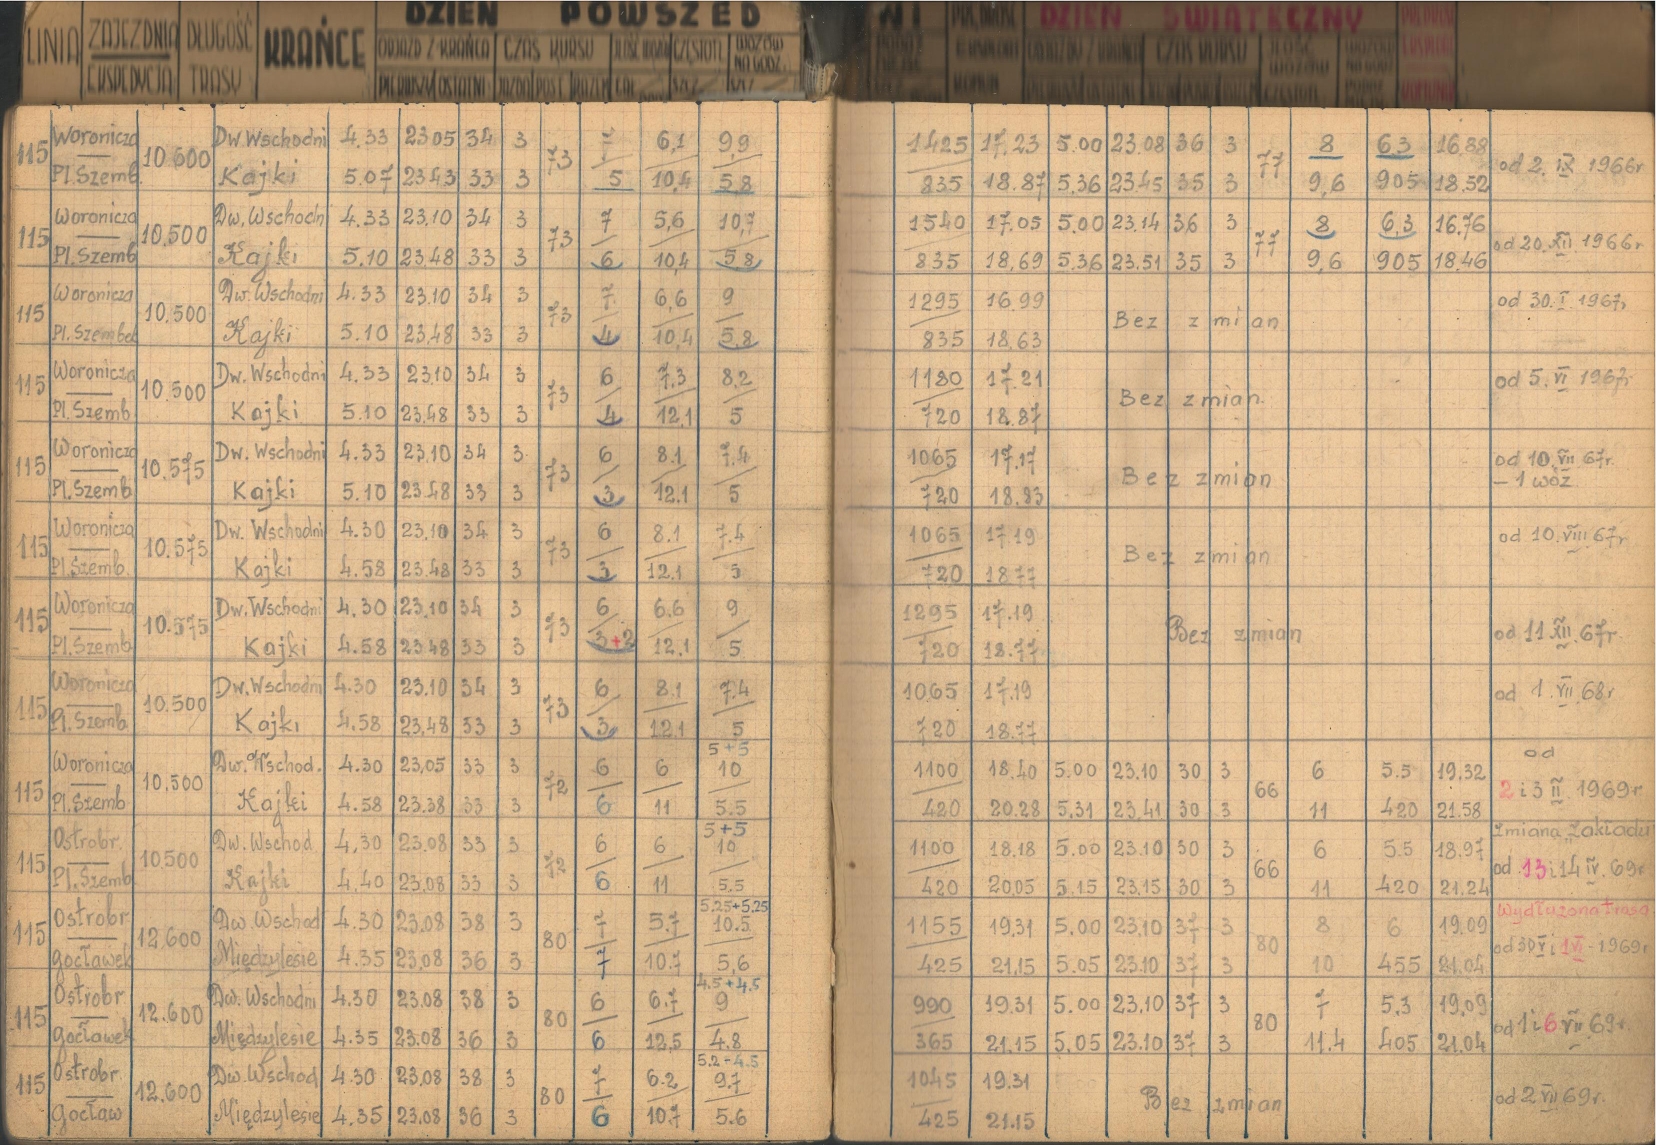 LINIA ZAJEZDNIA DŁUGOŚĆ KRAŃCE DZIEŃ POWSZED NI DZIEŃ ŚWIĄTECZNY
EKSPEDYCJA TRASY ODJAZD Z KRAŃCA CZAS KURSU
PIERWSZY OSTATNI JAZDA POST. RAZEM
Woronicza Dw. Wschodni 4.33 23.05 34 3 7 6,1 9,9 1425 17.23 5.00 23.08 36 3 8 6.3 16.88
115 10.600 73 77 od 2. IX 1966r
Pl. Szemb. Kajki 5.07 23.43 33 3 5 10,4 5.8 835 18.87 5.36 23.45 35 3 9,6 905 18.52
Woronicza Dw. Wschodn 4.33 23.10 34 3 7 5,6 10,7 1540 17.05 5.00 23.14 36 3 8 6,3 16.76
115 10.500 73 77 od 20. XII 1966r
Pl. Szemb Kajki 5.10 23.48 33 3 6 10,4 5.8 835 18,69 5.36 23.51 35 3 9,6 905 18.46
Woronicza Dw. Wschodni 4.33 23.10 34 3 7 6,6 9 1295 16.99 od 30. I 1967r
115 10.500 73 Bez zmian
Pl. Szembek Kajki 5.10 23.48 33 3 4 10,4 5,8 835 18,63
Woronicza Dw. Wschodni 4.33 23.10 34 3 6 7,3 8,2 1180 17.21 od 5. VI 1967r
115 10.500 73 Bez zmian.
Pl. Szemb Kajki 5.10 23,48 33 3 4 12,1 5 720 18.87
Woronicza Dw. Wschodni 4.33 23.10 34 3 6 8.1 7.4 1065 17.17 od 10. VII 67r.
115 10.575 73 Bez zmian – 1 wóz
Pl. Szemb Kajki 5.10 23.48 33 3 3 12.1 5 720 18.83
Woronicza Dw. Wschodni 4.30 23.10 34 3 6 8.1 7.4 1065 17.19 od 10. VIII 67r
115 10.575 73 Bez zmian
Pl. Szemb. Kajki 4.58 23.48 33 3 3 12.1 5 720 18.77
Woronicza Dw. Wschodni 4.30 23.10 34 3 6 6.6 9 1295 17.19
115 10.575 73 Bez zmian od 11 XII. 67r.
Pl. Szemb Kajki 4.58 23.48 33 3 3+2 12,1 5 720 18.77
Woronicza Dw. Wschodni 4.30 23.10 34 3 6 8.1 7.4 1065 17.19 od 1. VII 68r
115 10.500 73
Pl. Szemb Kajki 4.58 23,48 33 3 3 12.1 5 720 18.77
5+5 od
Woronicza Dw. Wschod. 4.30 23,05 33 3 6 6 10 1100 18.40 5.00 23.10 30 3 6 5.5 19,32
115 10,500 72 66 2 i 3 II. 1969r
Pl. Szemb Kajki 4.58 23.38 33 3 6 11 5.5 420 20.28 5,31 23.41 30 3 11 420 21.58
5+5 Zmiana zakładu
Ostrobr. Dw. Wschod 4,30 23.08 33 3 6 6 10 1100 18.18 5.00 23.10 30 3 6 5.5 18.97
115 10500 72 66 od 13 i 14 IV. 69r
Pl. Szemb Kajki 4.40 23,08 33 3 6 11 5.5 420 20.05 5.15 23,15 30 3 11 420 21.24
5.25+5.25 Wydłużona trasa
Ostrobr Dw. Wschod 4.30 23.08 38 3 7 5.7 10.5 1155 19,31 5.00 23,10 37 3 8 6 19.09
115 12.600 80 80 od 30 V i 1 VI - 1969r
Gocławek Międzylesie 4.35 23,08 36 3 7 10.7 5,6 425 21,15 5.05 23.10 37 3 10 455 21.04
4.5+4.5
Ostrobr Dw. Wschodni 4.30 23.08 38 3 6 6.7 9 990 19.31 5.00 23,10 37 3 7 5,3 19,09
115 12.600 80 80 od 1 i 6 VII 69r.
Gocławek Międzylesie 4.35 23.08 36 3 6 12,5 4.8 365 21.15 5.05 23.10 37 3 11.4 405 21.04
5.2-4.5
Ostrobr. Dw. Wschod 4.30 23,08 38 3 7 6.2 9.7 1045 19.31
115 12.600 80 Bez zmian od 2 VII 69r.
Gocław Międzylesie 4.35 23.08 36 3 6 10.7 5.6 425 21.15